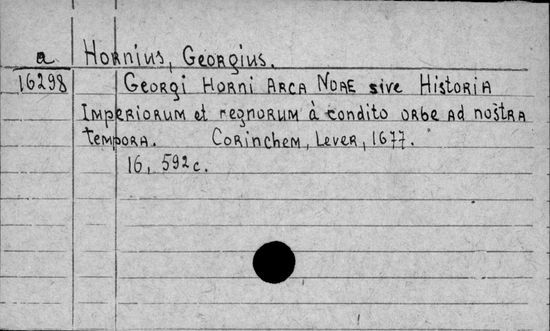 a Hornius, Georgius.
16298 Georgi Horni Arca Noae sive Historia
Imperiorum et regnorum à condito orbe ad nostra
tempora. Corinchem, Lever, 1677.
16, 592 c.